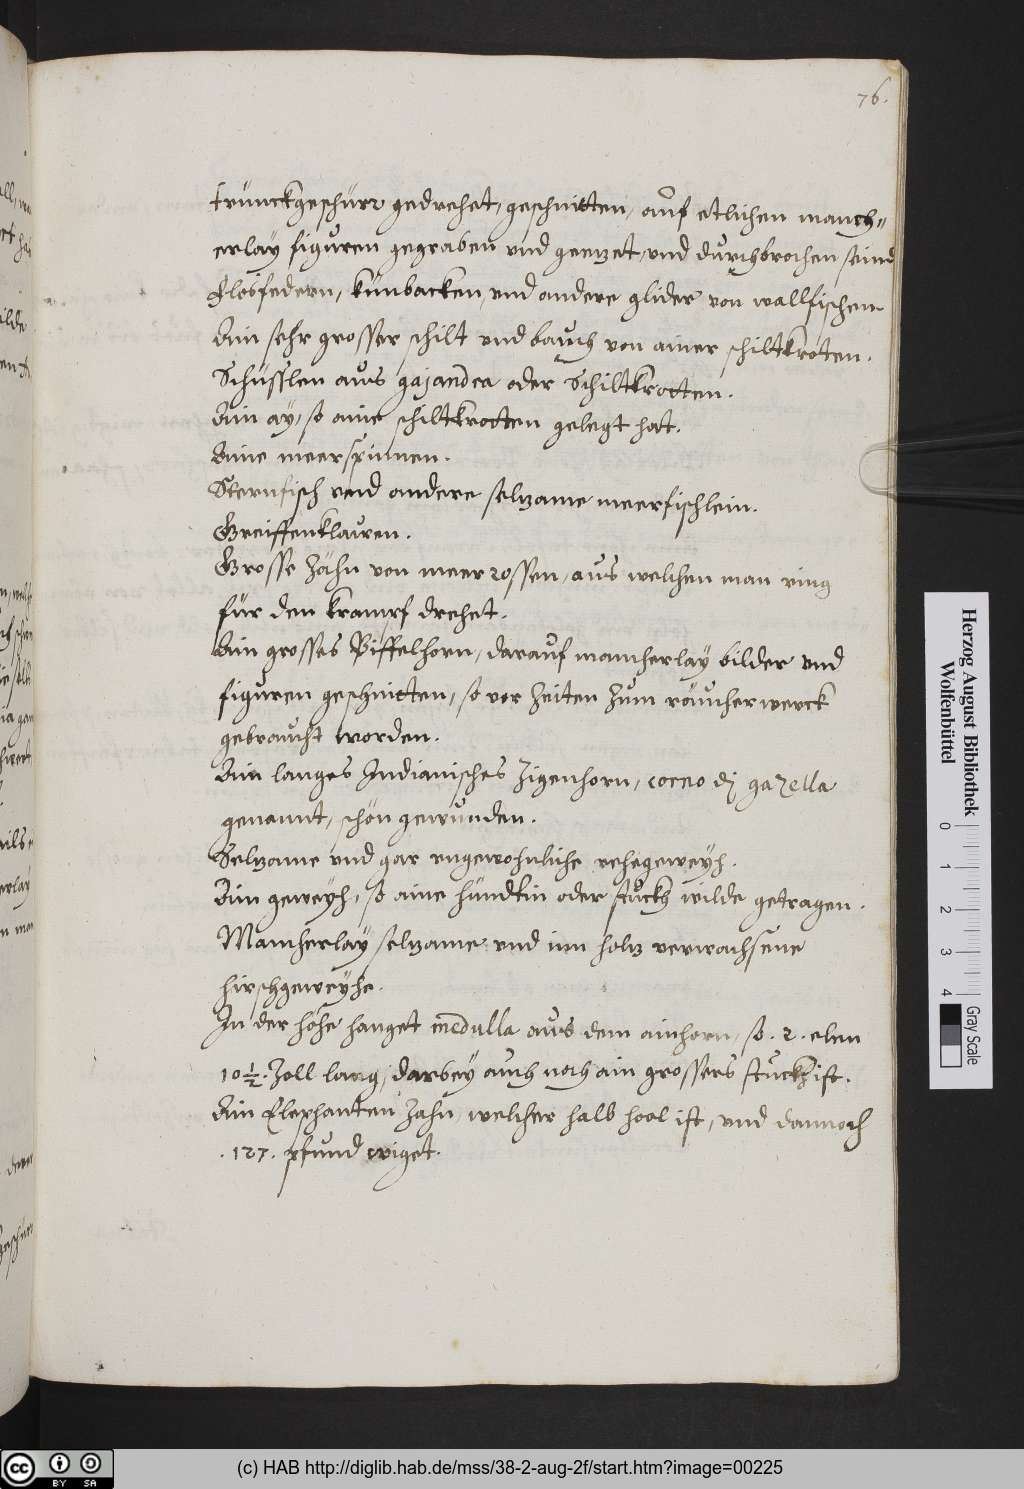 76.
trünckgeschürr gedrehet, geschnitten, auf etlichen manch=
erlay figuren gegraben vnd geenzet, vnd durchbrochen seind
Flosfedern, künbacken, vnd andere glider von wallfischen
Ain sehr grosser schilt vnd bauch von ainer schiltkroten.
Schüsslen aus gajandra oder Schiltkrotten.
Ain ay, so aine schiltkrotten gelegt hat.
Aine meerspinnen.
Sternfisch vnd andere selzame meerfischlein.
Greiffenklauen.
Grosse Zähn von meerrossen, aus welchen man ring
für den krampf drehet.
Ain grosses Piffelhorn, darauf mancherlay bilder vnd
figuren geschnitten, so vor zeiten zum räucherwerck
gebraucht worden.
Ain langes Indianisches Zigenhorn, corno di gazella
genannt, schön gewunden.
Selzame vnd gar vngewohnliche rehegeweyh.
Ain geweyh, so aine hündtin oder stuckh wilde getragen.
Mancherlay selzame vnd inn holz verwachsene
hirschgeweyhe.
In der höhe hanget medulla aus dem ainhorn, so .2. elen
10 1/2. Zoll lang, darbey auch noch ain grossers stuckh ist.
Ain Elephanten Zahn, welcher halb hool ist, vnd dannoch
.127. pfund wiget.
Herzog August Bibliothek
Wolfenbüttel
0 1 2 3 4
Gray Scale
cc BY SA
(c) HAB http://diglib.hab.de/mss/38-2-aug-2f/start.htm?image=00225